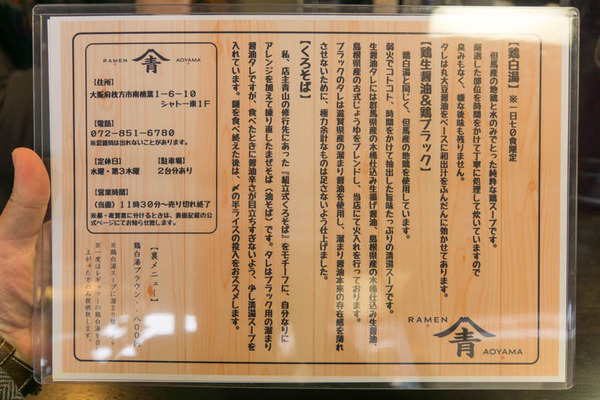 【鶏白湯】※一日七〇食限定
但馬産の地鶏と水のみでとった純粋な鶏スープです。
厳選した部位を時間をかけて丁寧に処理して炊いていますので
臭みもなく、嫌な後味も残りません。
タレは丸大豆醤油をベースに和出汁をふんだんに効かせてあります。
【鶏生醤油&鶏ブラック】
鶏白湯と同じく、但馬産の地鶏を使用しています。
弱火でコトコト、時間をかけて抽出した旨味たっぷりの清湯スープです。
生醤油タレには群馬県産の木桶仕込み生揚げ醤油、島根県産の木桶仕込み生醤油、
島根県産の古式じょうゆをブレンドし、当店にて火入れを行っております。
ブラックのタレは滋賀県産の溜まり醤油を使用し、溜まり醤油本来の存在感を薄れ
させないために、極力余計なものは足さないよう仕上げました。
【くろそば】
私、店主青山の修行先にあった『組立式くろそば』をモチーフに、自分なりに
アレンジを加えて練り直したまぜそば(油そば)です。タレはブラック用の溜まり
醤油タレですが、食べたときに醤油辛さが目立ちすぎないよう、少し清湯スープを
入れています。麺を食べ終えた後は、〆の半ライスの投入をおススメします。
RAMEN 青 AOYAMA
【住所】
大阪府枚方市南楠葉1-6-10
シャトー東1F
【電話】
072-851-6780
※営業時間は出れないことがあります。
【定休日】 【駐車場】
水曜・第3木曜 2台分あり
【営業時間】
(当面)11時30分~売り切れ終了
※昼・夜営業に分けるときは、表面記載の公
式ページにてお知らせ致します。
【裏メニュー】
鶏白湯ブラウン
八〇〇円
※鶏白湯スープに溜まり
RAMEN 青 AOYAMA